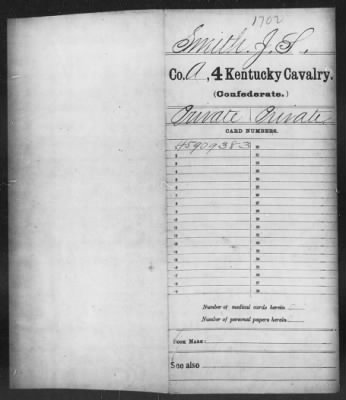 1702
Smith, J. S.
Co. A, 4 Kentucky Cavalry.
(Confederate.)
Private Private
CARD NUMBERS.
45909383
Number of medical cards herein
Number of personal papers herein
BOOK MARK:
See also